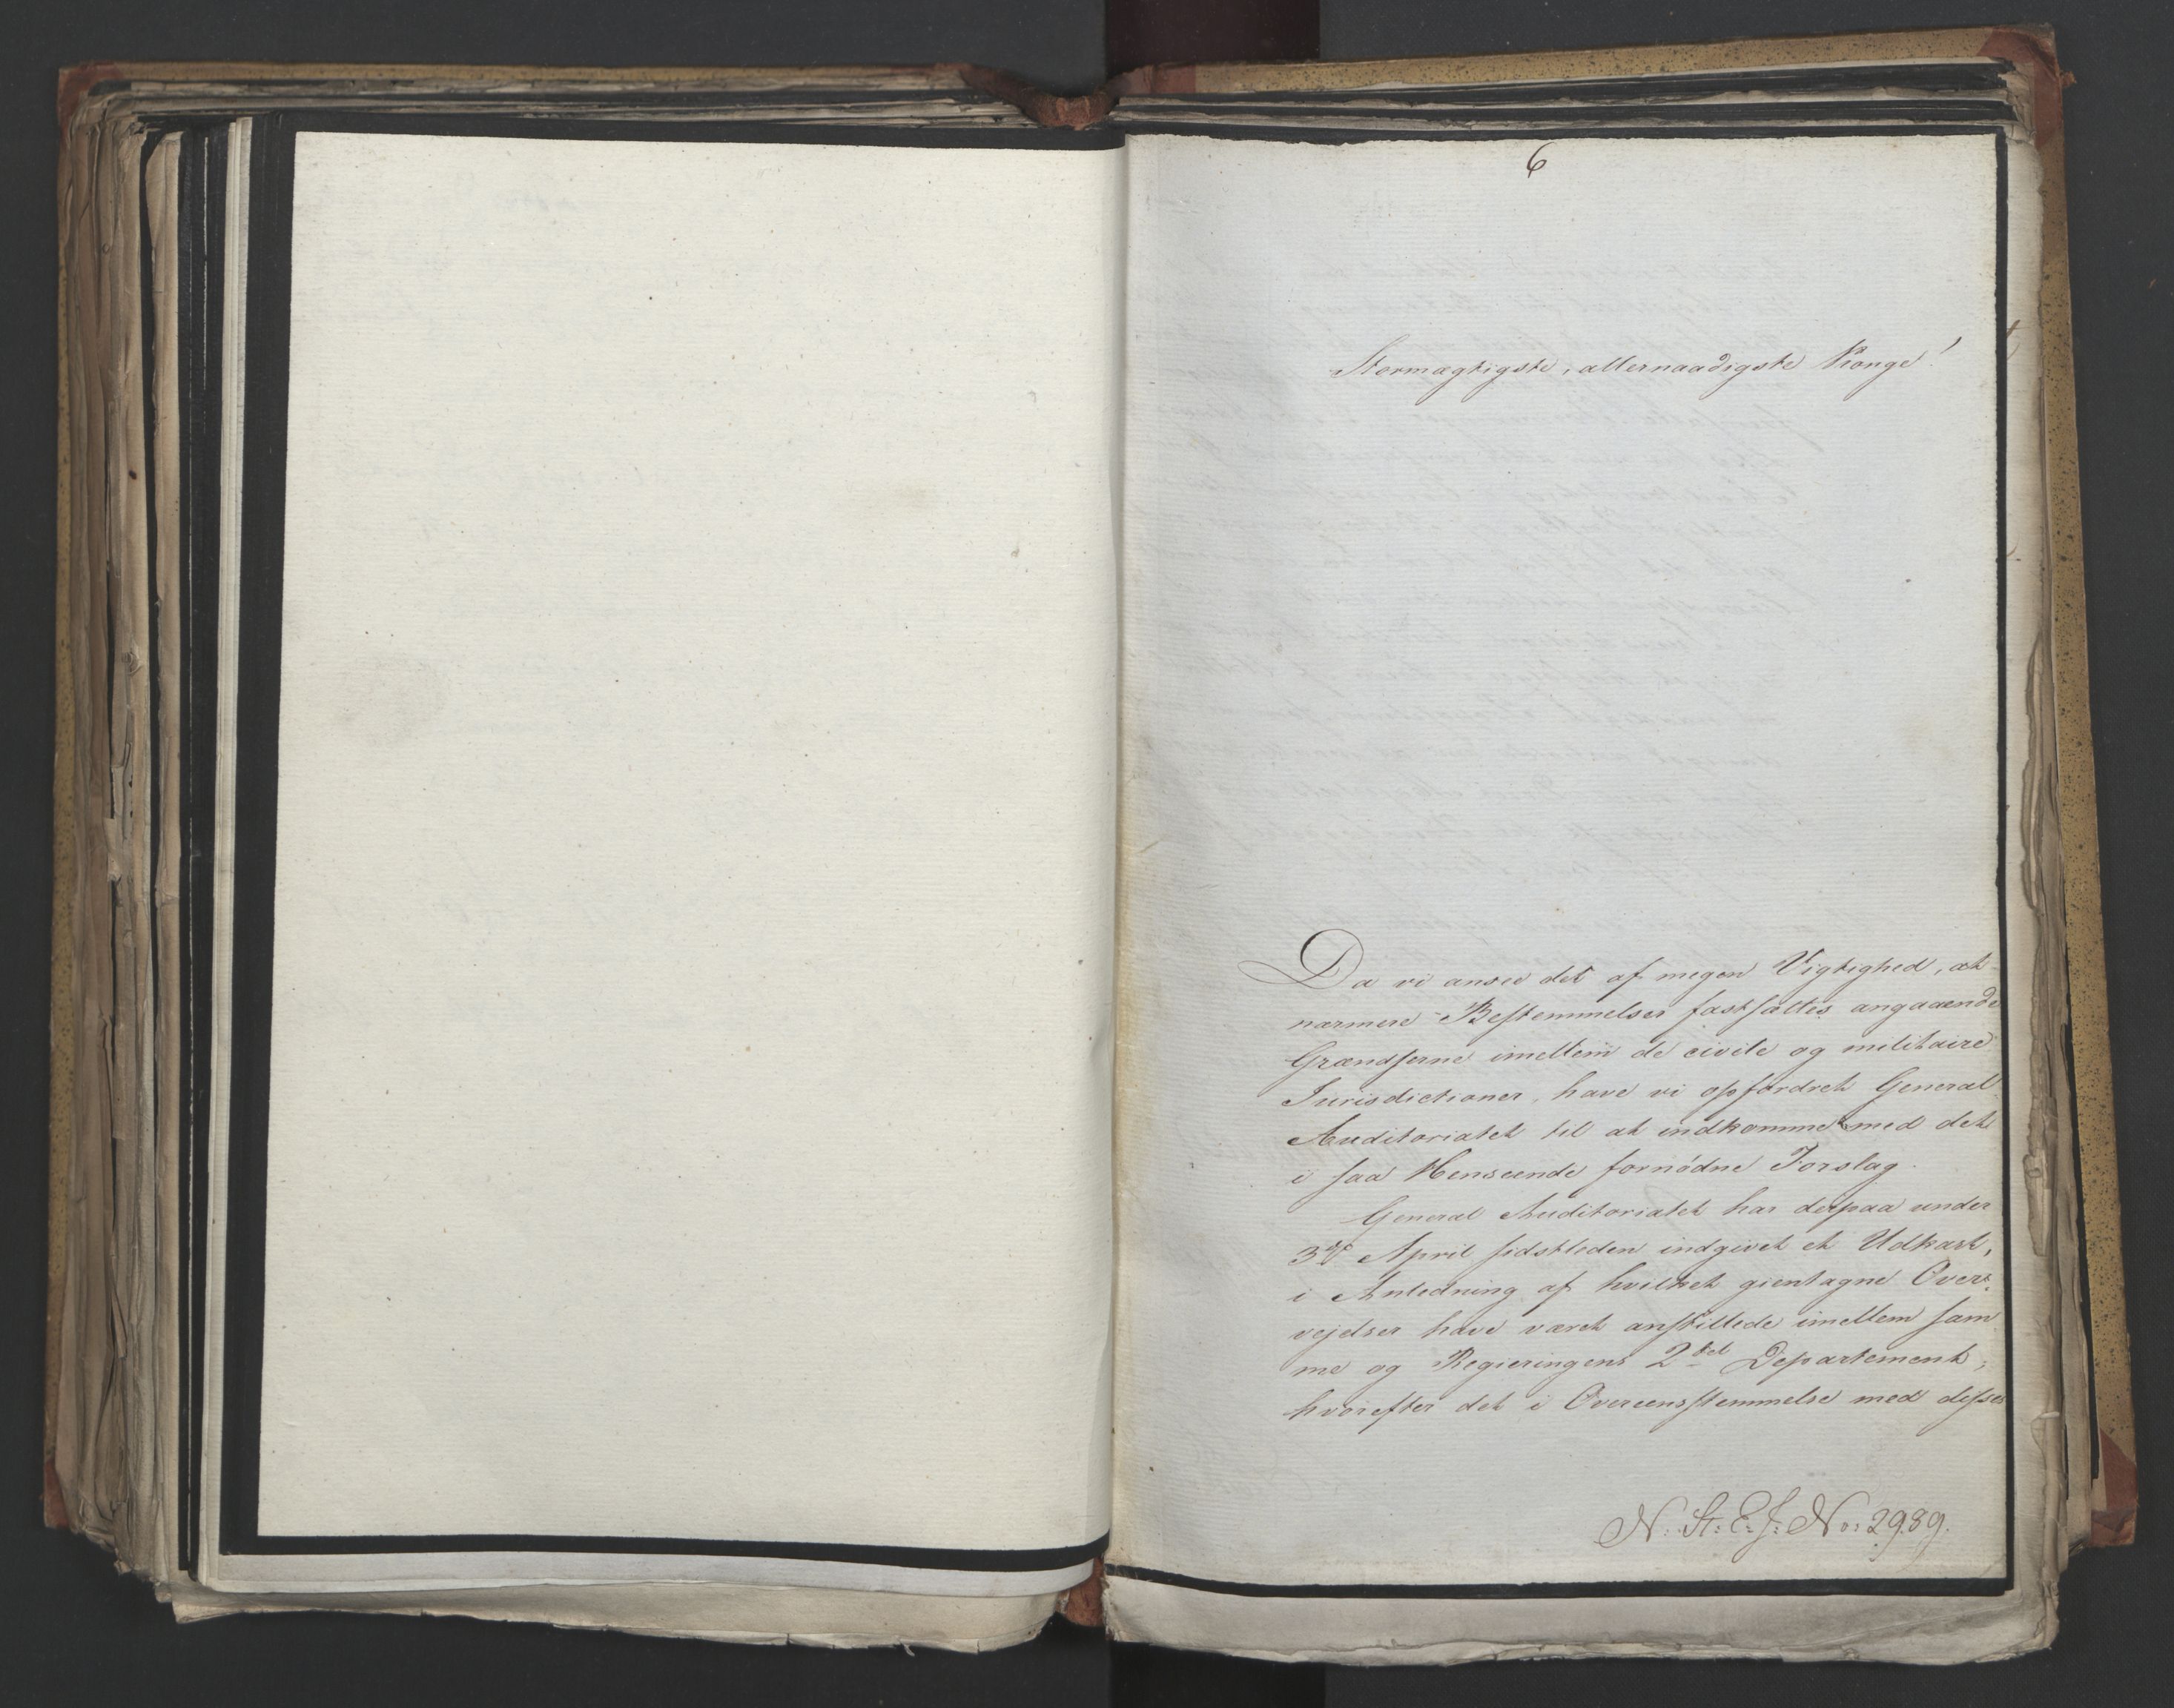 6
Stormægtigste, allernaadigste Konge!
Da vi ansee det af megen Vigtighed, at
nærmere Bestemmelser fastsættes angaaende
Grændserne imellem de civile og militaire
Jurisdictioner, have vi opfordret General
Auditoriatet til at indkomme med det
i saa Henseende fornödne Forslag.
General Auditoriatet har derpaa under
3de April sidstleden indgivet et Udkast,
i Anledning af hvilket gientagne Over-
vejelser have været anstillede imellem sam
me og Regieringens 2det Departement,
hvorefter det i Overeensstemmelse med disses
N: St: E: J: No: 2989.